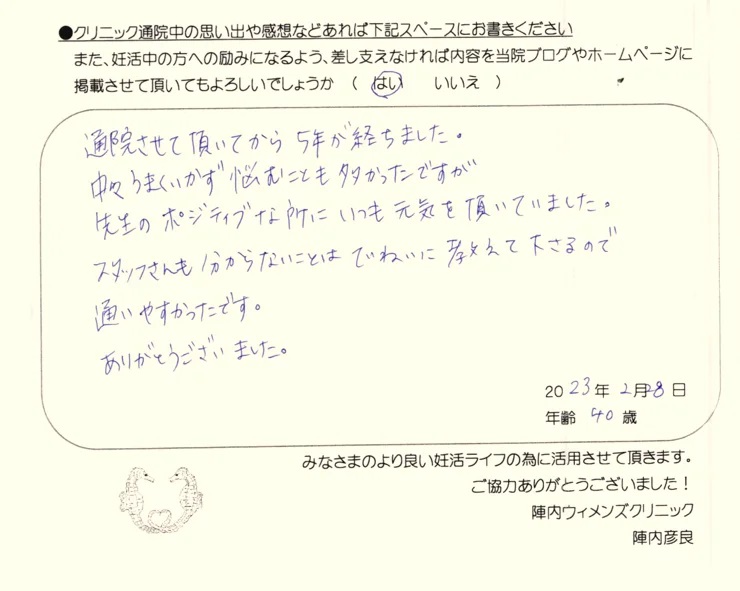 ●クリニック通院中の思い出や感想などあれば下記スペースにお書きください
また、妊活中の方への励みになるよう、差し支えなければ内容を当院ブログやホームページに
掲載させて頂いてもよろしいでしょうか （ はい いいえ ）
通院させて頂いてから 5年が経ちました。
中々うまくいかず 悩むことも多かったですが
先生の ポジティブな所に いつも 元気を 頂いていました。
スタッフさんも 分からないことは ていねいに 教えて 下さるので
通いやすかったです。
ありがとうございました。
2023年 2月28日
年齢 40 歳
みなさまのより良い妊活ライフの為に活用させて頂きます。
ご協力ありがとうございました！
陣内ウィメンズクリニック
陣内彦良